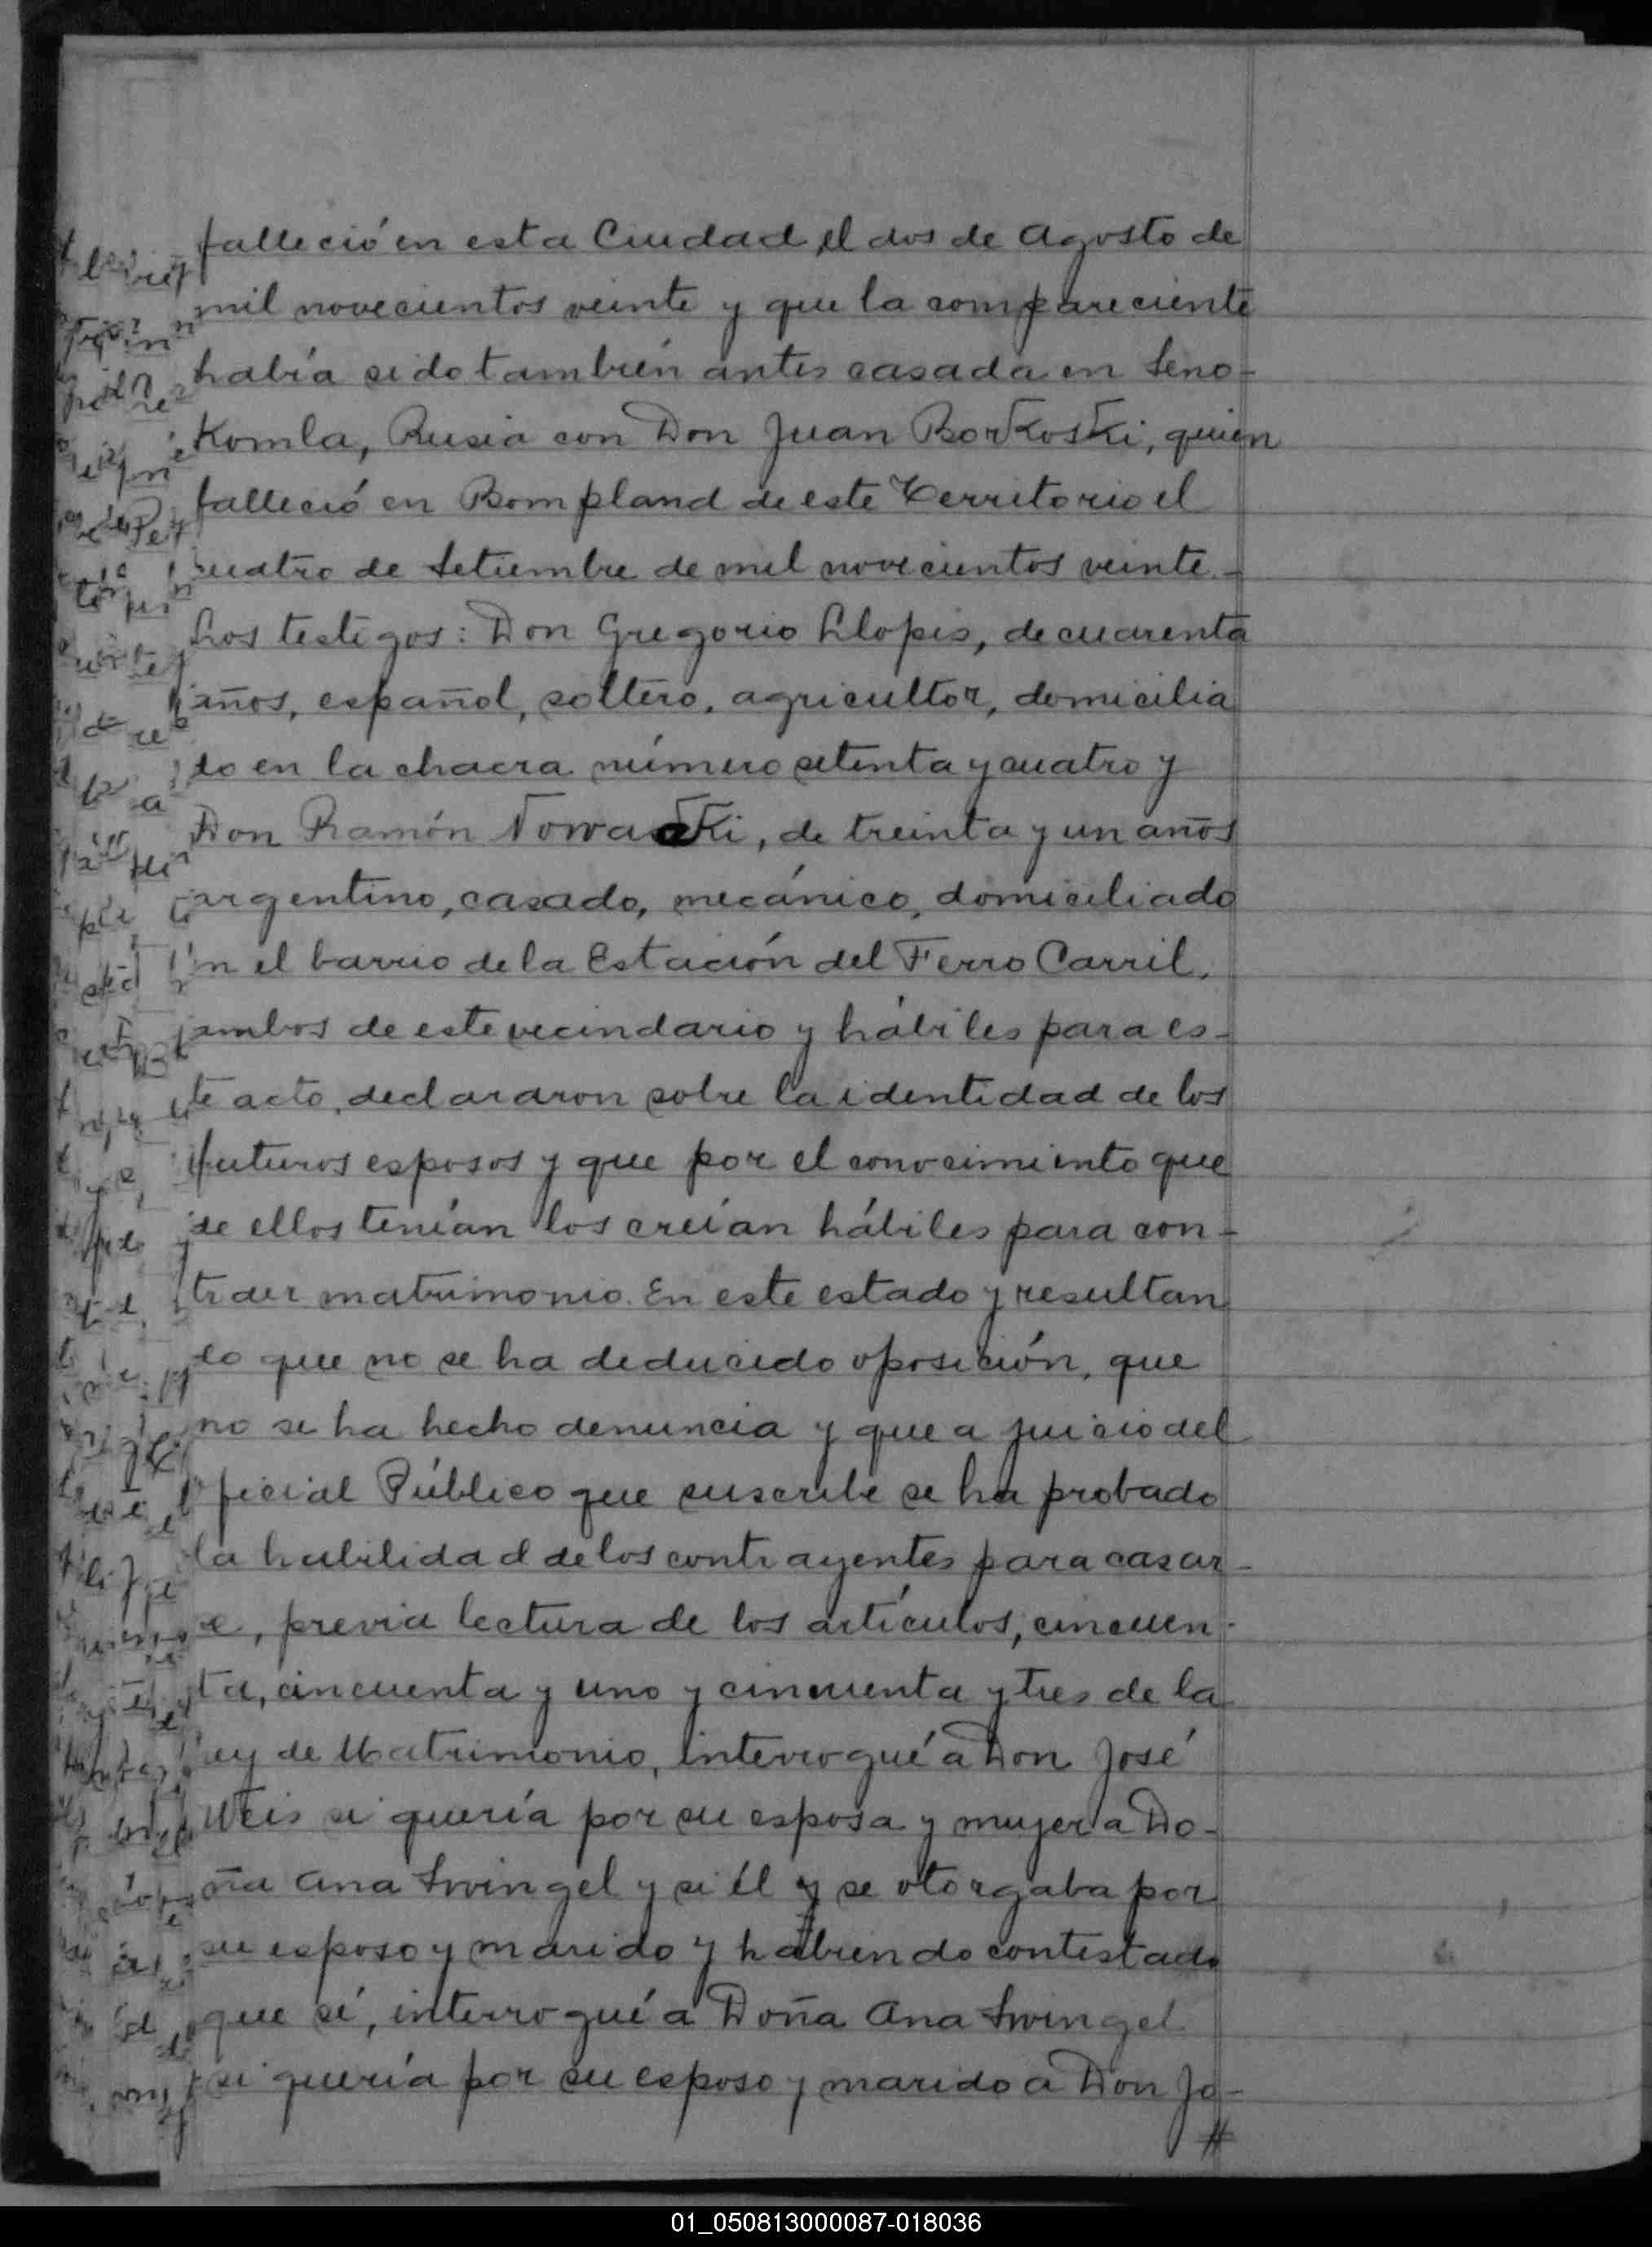 falleció en esta Ciudad el dos de Agosto de
mil novecientos veinte y que la compareciente
había sido también antes casada en Seno-
Komla, Rusia con Don Juan Borkoski, quien
falleció en Bompland de este Territorio el
cuatro de Setiembre de mil novecientos veinte.-
Los testigos: Don Gregorio Llopis, de cuarenta
años, español, soltero, agricultor, domicilia
do en la chacra número setenta y cuatro y
Don Ramón Nowacki, de treinta y un años
argentino, casado, mecánico, domiciliado
en el barrio de la Estación del Ferro Carril,
ambos de este vecindario y hábiles para es-
te acto, declararon sobre la identidad de los
futuros esposos y que por el conocimiento que
de ellos tenían los creían hábiles para con-
traer matrimonio. En este estado y resultan
do que no se ha deducido oposición, que
no se ha hecho denuncia y que a juicio del
Oficial Público que suscribe se ha probado
la habilidad de los contrayentes para casar-
se, previa lectura de los artículos, cincuen-
ta, cincuenta y uno y cincuenta y tres de la
Ley de Matrimonio, interrogué a Don José
Weis si quería por su esposa y mujer a Do-
ña Ana Swingel y si él y se otorgaba por
su esposo y marido y habiendo contestado
que sí, interrogué a Doña Ana Swingel
si quería por su esposo y marido a Don Jo-
#
01_050813000087-018036